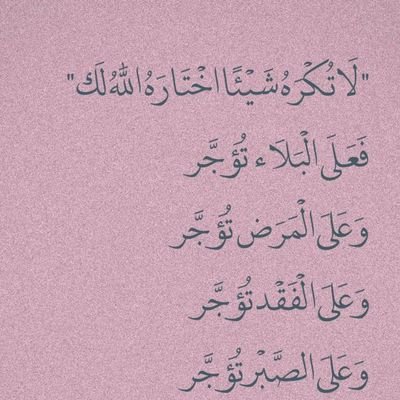 "لَا تُكْرَهُ شَيْئًا اخْتَارَهُ اللهُ لَك"
فَعَلَى الْبَلَاء تُؤجَّر
وَعَلَى الْمَرَض تُؤجَّر
وَعَلَى الْفَقْد تُؤجَّر
وَعَلَى الصَّبْر تُؤجَّر